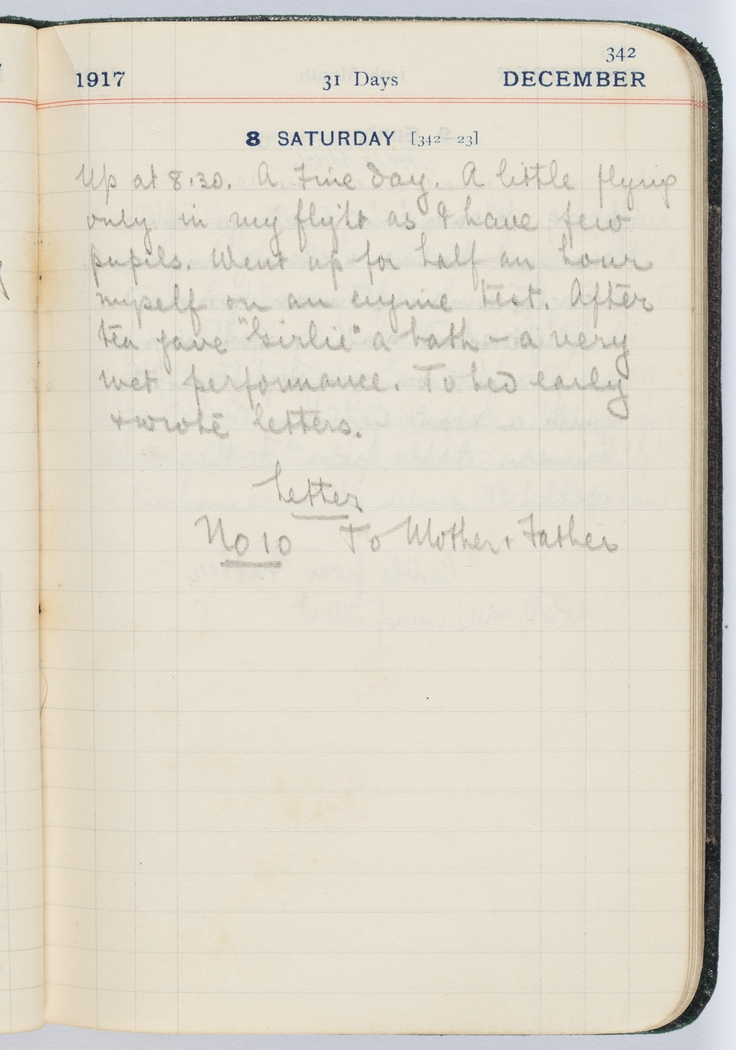 342
1917 31 Days DECEMBER
8 SATURDAY [342–23]
Up at 8.30. A Fine day. A little flying
only in my flight as I have few
pupils. Went up for half an hour
myself on an engine test. After
tea gave "Girlie" a bath – a very
wet performance. To bed early
+ wrote letters.
Letter
No 10 To Mother + Father